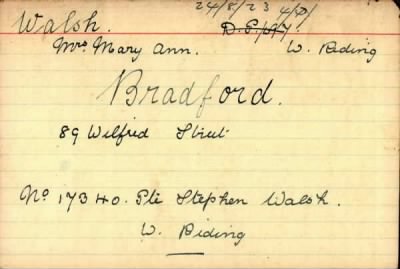 24/8/23
Walsh. D.P.
Mrs Mary Ann. W. Riding
Bradford.
89 Wilfred Street
No 17340. Pte Stephen Walsh.
W. Riding